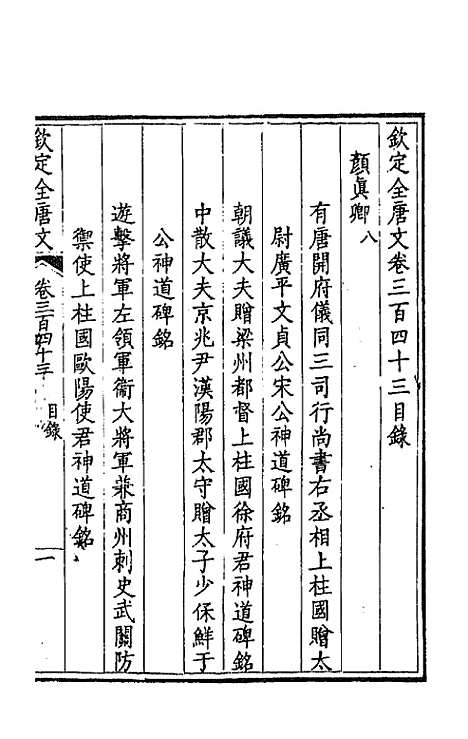 欽定全唐文卷三百四十三目錄
顏眞卿八
有唐開府儀同三司行尚書右丞相上柱國贈太
尉廣平文貞公宋公神道碑銘
朝議大夫贈梁州都督上柱國徐府君神道碑銘
中散大夫京兆尹漢陽郡太守贈太子少保鮮于
公神道碑銘
遊擊將軍左領軍衞大將軍兼商州刺史武關防
禦使上柱國歐陽使君神道碑銘
欽定全唐文 卷三百四十三 目錄 一